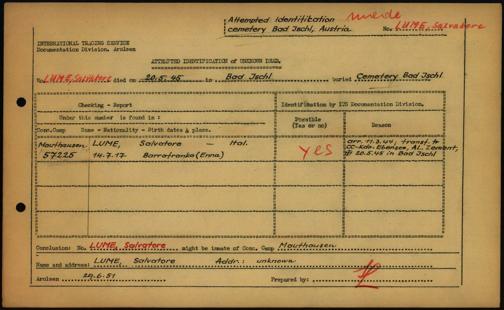 Attempted identification
cemetery Bad Jschl, Austria.
No. LUME, Salvatore
INTERNATIONAL TRACING SERVICE
Documentation Division, Arolsen
ATTEMPTED IDENTIFICATION of UNKNOWN DEAD.
No. LUME, Salvatore died on 20.5.45 in Bad Jschl buried Cemetery Bad Jschl.
Checking - Report
Identification by ITS Documentation Division.
Under this number is found in:
Possible
(Yes or no)
Reason
Conc.Camp Name - Nationality - Birth dates & place.
Mauthausen LUME, Salvatore – Ital.
57225 14.7.17 Barrafranka (Enna)
yes
arr. 11.3.44; transf. to
CC-Kdo. Ebensee, AL. Zement;
20.5.45 in Bad Jschl
Conclusion: No. LUME, Salvatore might be inmate of Conc. Camp Mauthausen
Name and address: LUME, Salvatore Addr.: unknown
Arolsen 29.6.51 Prepared by: